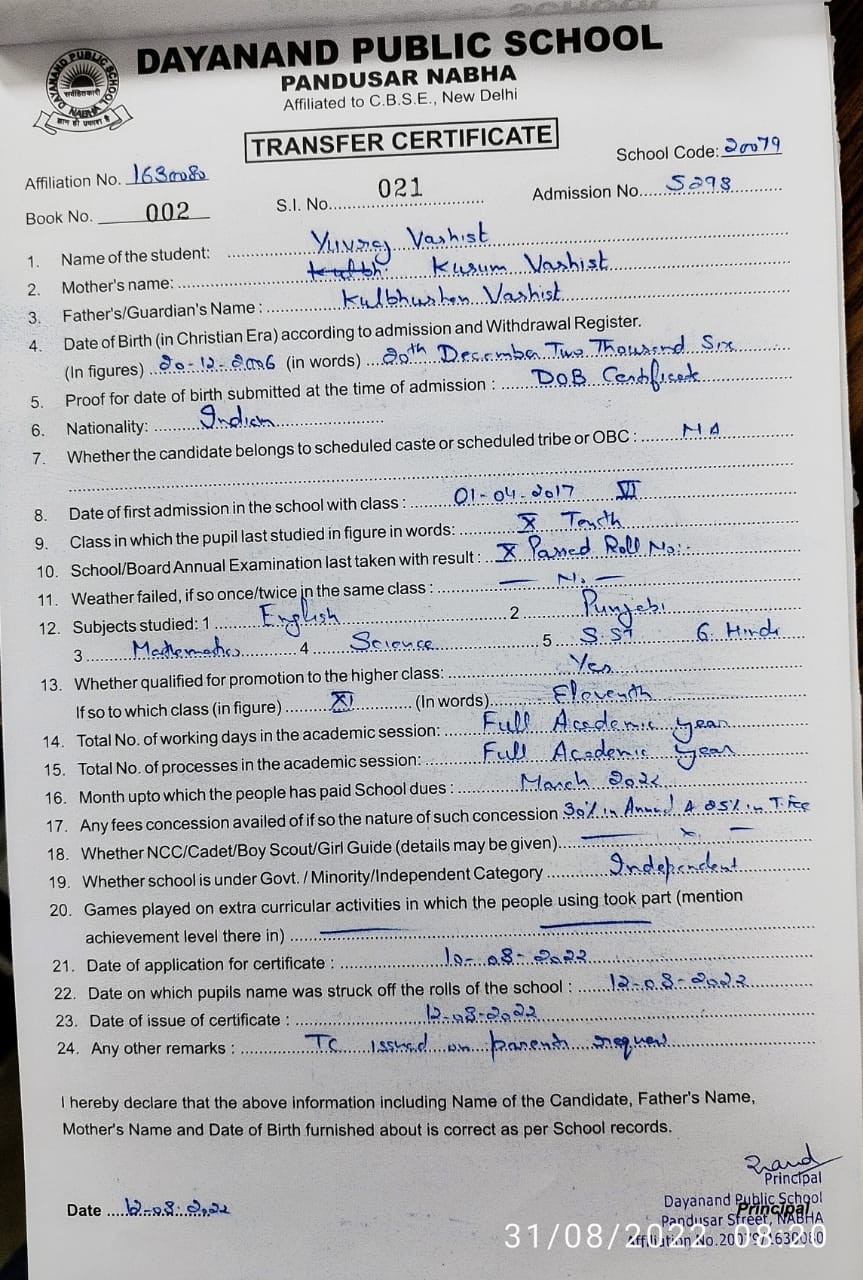 DAYANAND PUBLIC SCHOOL
PANDUSAR NABHA
Affiliated to C.B.S.E., New Delhi
DAYANAND PUBLIC SCHOOL
NABHA
TRANSFER CERTIFICATE
School Code: 20079
Affiliation No. 1630080
Book No. 002 S.I. No. 021 Admission No. 5298
1. Name of the student: Yuvraj Vashist
2. Mother's name: Kusum Vashist
3. Father's/Guardian's Name : Kulbhushan Vashist
4. Date of Birth (in Christian Era) according to admission and Withdrawal Register.
(In figures) 20-12-2006 (in words) 20th December Two Thousand Six
5. Proof for date of birth submitted at the time of admission : DOB Certificate
6. Nationality: Indian
7. Whether the candidate belongs to scheduled caste or scheduled tribe or OBC : NA
8. Date of first admission in the school with class : 01-04-2017 VI
9. Class in which the pupil last studied in figure in words: X Tenth
10. School/Board Annual Examination last taken with result : X Passed Roll No:-
11. Weather failed, if so once/twice in the same class :
12. Subjects studied: 1 English 2 Punjabi
3 Mathematics 4 Science 5 S.ST 6. Hindi
13. Whether qualified for promotion to the higher class: Yes
If so to which class (in figure) XI (In words) Eleventh
14. Total No. of working days in the academic session: Full Academic year
15. Total No. of processes in the academic session: Full Academic year
16. Month upto which the people has paid School dues : March 2022
17. Any fees concession availed of if so the nature of such concession 30% in Annual & 25% in T.Fee
18. Whether NCC/Cadet/Boy Scout/Girl Guide (details may be given)
19. Whether school is under Govt. / Minority/Independent Category Independent
20. Games played on extra curricular activities in which the people using took part (mention
achievement level there in)
21. Date of application for certificate : 10-08-2022
22. Date on which pupils name was struck off the rolls of the school : 12-08-2022
23. Date of issue of certificate : 12-08-2022
24. Any other remarks : TC issued on parents request
I hereby declare that the above information including Name of the Candidate, Father's Name,
Mother's Name and Date of Birth furnished about is correct as per School records.
Principal
Dayanand Public School
Date 12-08-2022
Principal
Pandusar Street, NABHA
Affiliation No.20079/1630080
31/08/2022 08:20